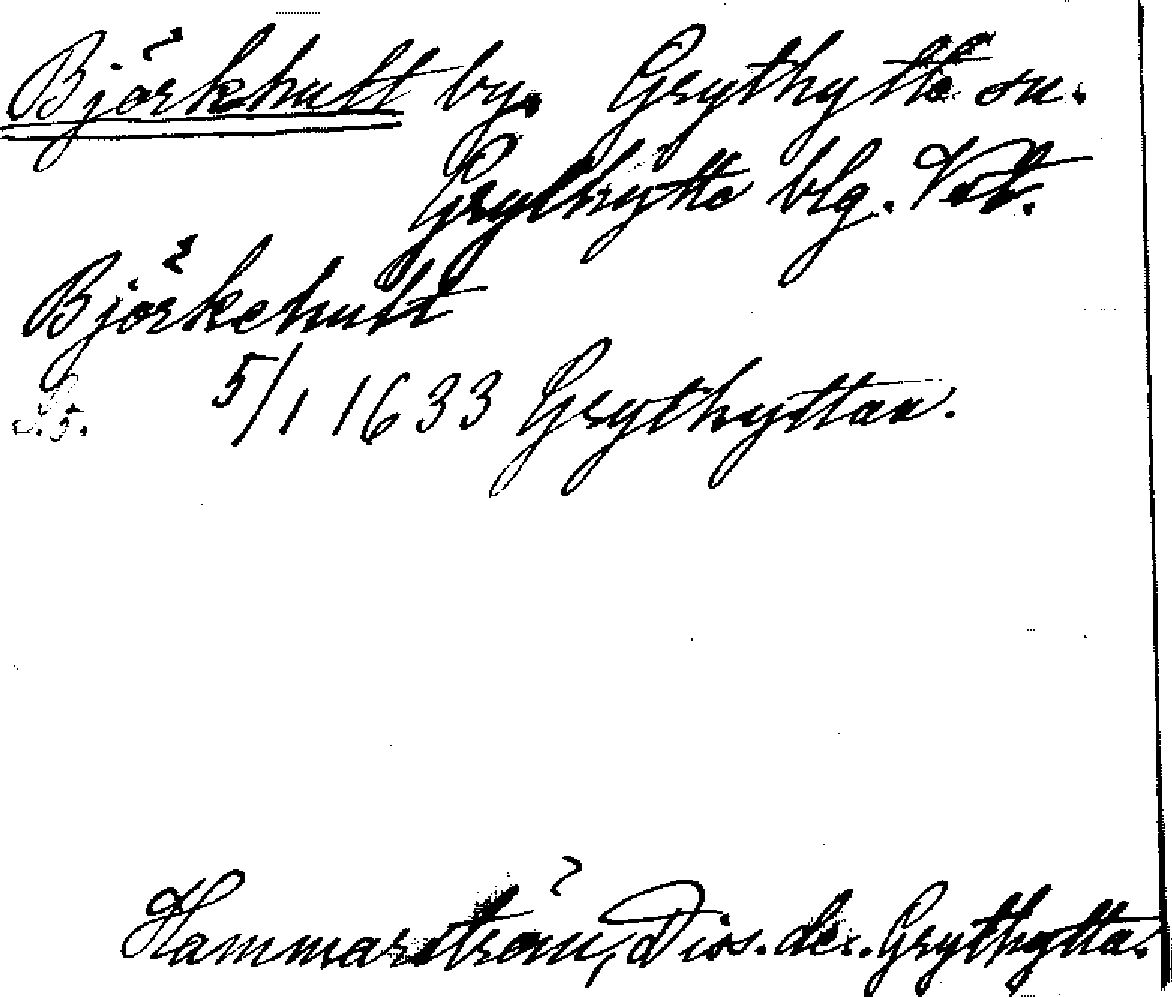 Björkhutt by. Grythytte sn.
Grythytte blg. Vstl.
Björkehutt
5/1 1633 Grythyttan.
Hammarström, Dios. der. Grythytta.